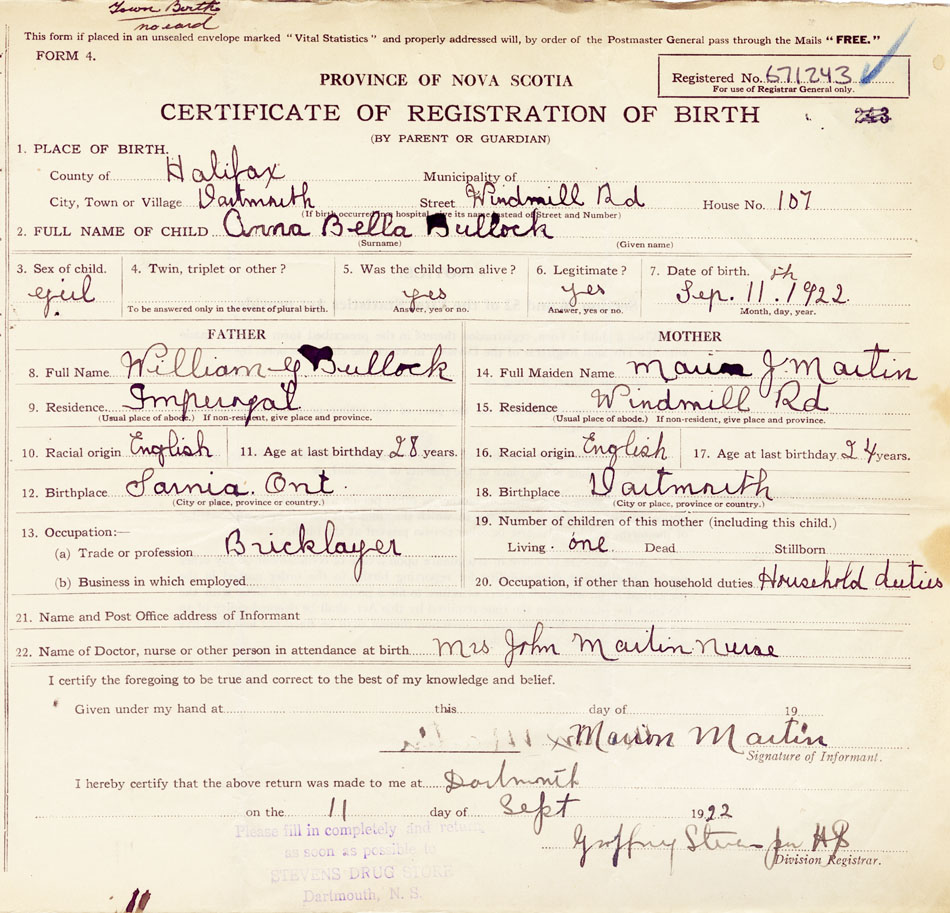 Town Births
no card
This form if placed in an unsealed envelope marked "Vital Statistics" and properly addressed will, by order of the Postmaster General pass through the Mails "FREE."
FORM 4.
PROVINCE OF NOVA SCOTIA
Registered No. 671243
For use of Registrar General only.
CERTIFICATE OF REGISTRATION OF BIRTH
243
(BY PARENT OR GUARDIAN)
1. PLACE OF BIRTH.
County of Halifax Municipality of
City, Town or Village Dartmouth Street Windmill Rd House No. 107
(If birth occurred in a hospital, give its name instead of Street and Number)
2. FULL NAME OF CHILD Anna Bella Bullock
(Surname) (Given name)
3. Sex of child. 4. Twin, triplet or other? 5. Was the child born alive? 6. Legitimate? 7. Date of birth.
girl yes yes Sep. 11th. 1922
To be answered only in the event of plural birth. Answer, yes or no. Answer, yes or no. Month, day, year.
FATHER MOTHER
8. Full Name William G Bullock 14. Full Maiden Name Marion J. Martin
9. Residence. Imperoyal 15. Residence Windmill Rd
(Usual place of abode.) If non-resident, give place and province. (Usual place of abode.) If non-resident, give place and province.
10. Racial origin English 11. Age at last birthday 28 years. 16. Racial origin English 17. Age at last birthday 24 years.
12. Birthplace Sarnia. Ont. 18. Birthplace Dartmouth
(City or place, province or country.) (City or place, province or country.)
13. Occupation:— 19. Number of children of this mother (including this child.)
(a) Trade or profession Bricklayer Living one Dead Stillborn
(b) Business in which employed 20. Occupation, if other than household duties Household duties
21. Name and Post Office address of Informant
22. Name of Doctor, nurse or other person in attendance at birth Mrs John Martin Nurse
I certify the foregoing to be true and correct to the best of my knowledge and belief.
Given under my hand at this day of 19
Marion Martin
Signature of Informant.
I hereby certify that the above return was made to me at Dartmouth
on the 11 day of Sept 1922
Please fill in completely and return
as soon as possible to
STEVENS DRUG STORE
Dartmouth, N. S.
Division Registrar.